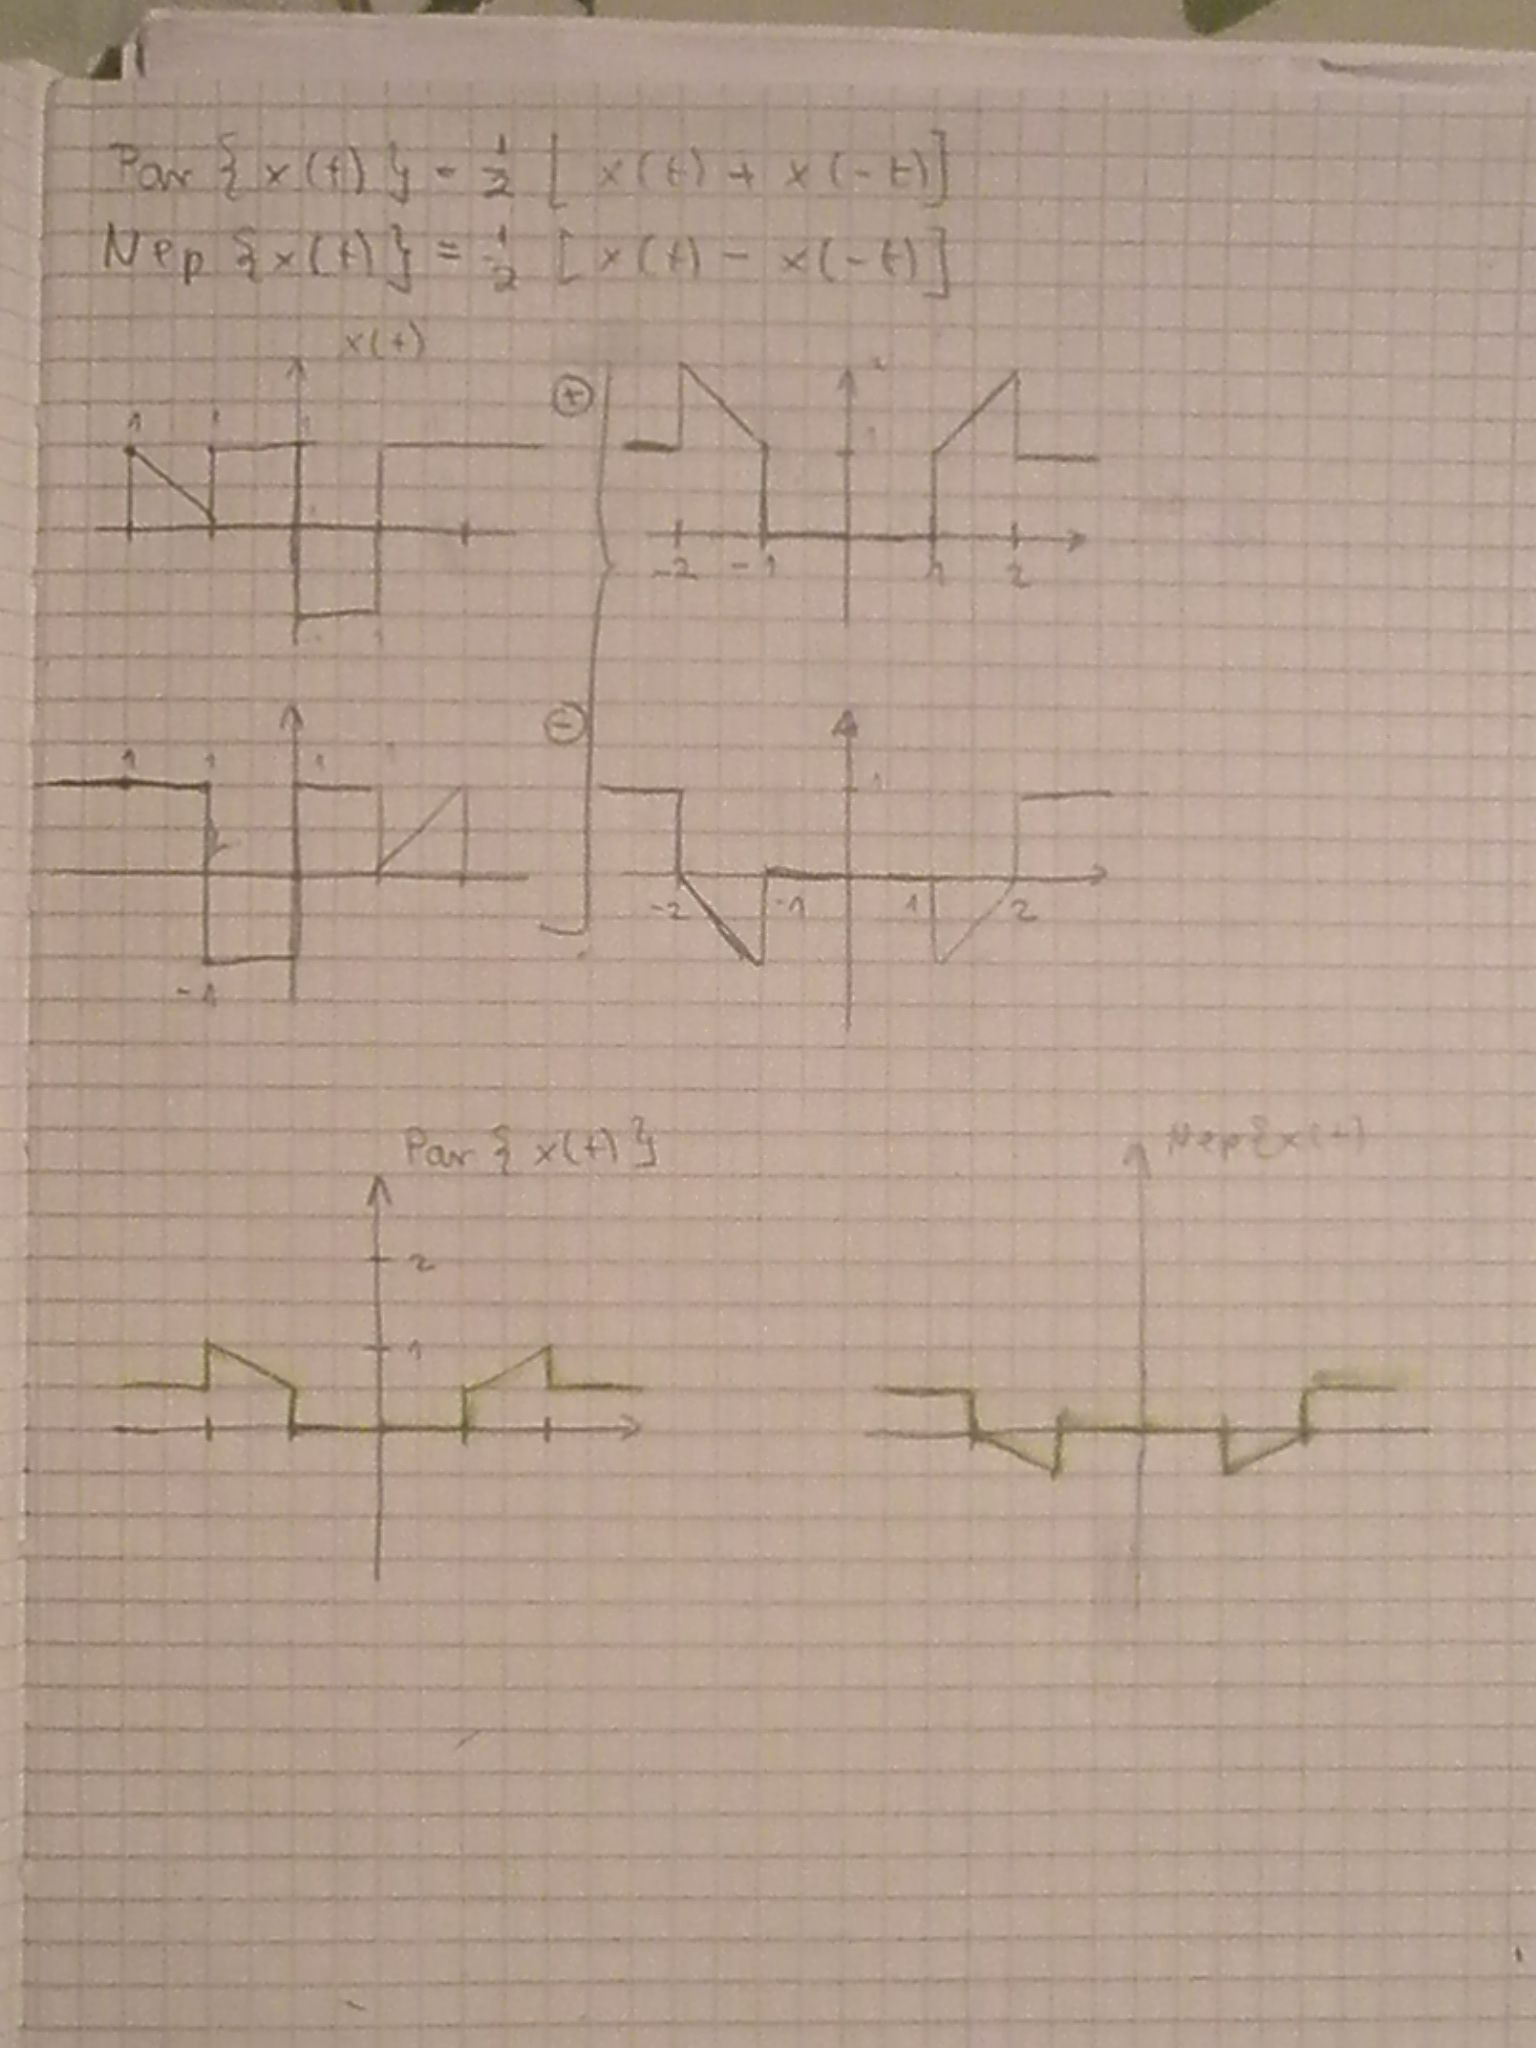 Par { x(t) } = 1/2 [ x(t) + x(-t)]
Nep {x(t)} = 1/2 [x(t) - x(-t)]
x(t)
1 1 1
+
1
-2 -1 1 2
1 1 1
-
1
-1
-2 -1 1 2
Par { x(t) }
Nep{x(t)
2
1